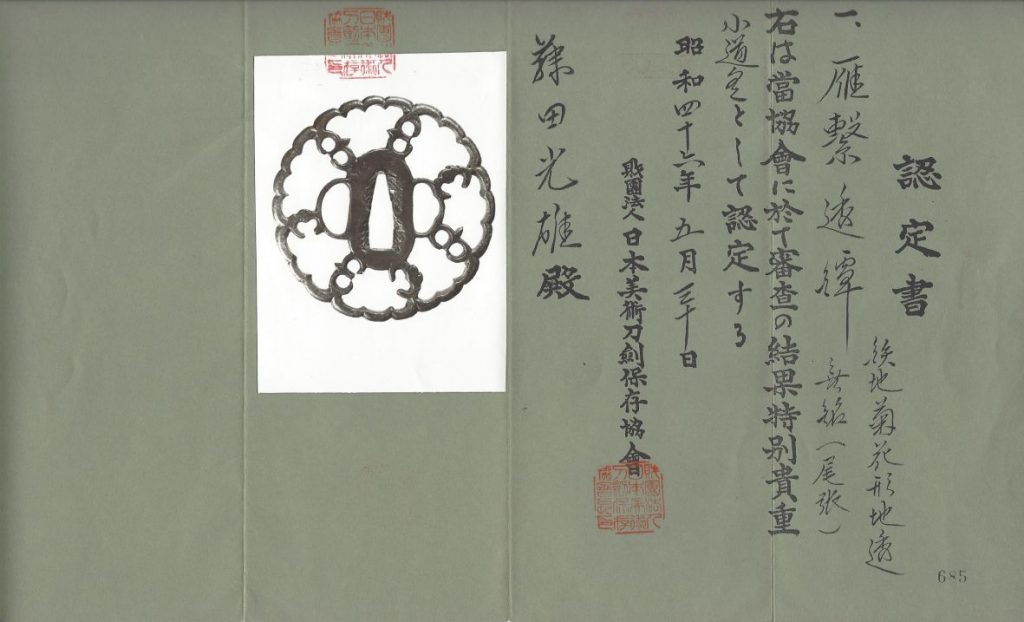 認定書
一、雁繋透鐔
鉄地菊花形地透
無銘(尾張)
右は當協會に於て審査の結果特別貴重
小道具として認定する
昭和四十六年五月三十日
財團法人日本美術刀劍保存協會
光雄殿
685